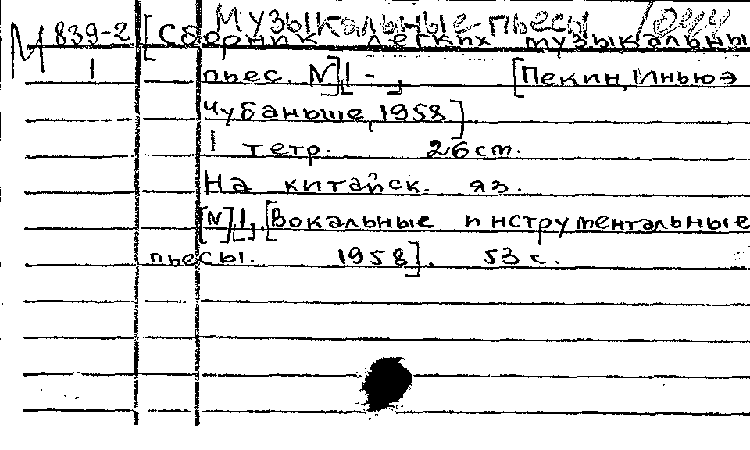 Музыкальные пьесы
М 839-2 [Сборник легких музыкальны
1 пьес. N][1 - , [Пекин, Иньюэ
чубаньше, 1958]
1 тетр. 26 cm.
На китайск. яз.
[N].1, [Вокальные инструментальные
пьесы. 1958]. 53 с.